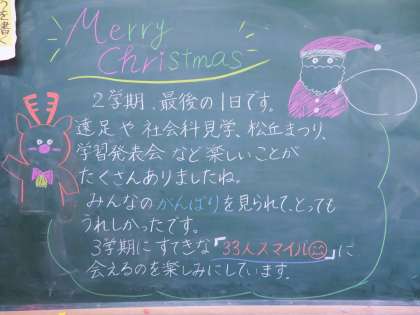 うを書く
Merry
Christmas
2学期、最後の1日です。
遠足や社会科見学、松丘まつり、
学習発表会など楽しいことが
たくさんありましたね。
みんなのがんばりを見られて、とっても
うれしかったです。
3学期にすてきな「33人スマイル」に
会えるのを楽しみにしています。